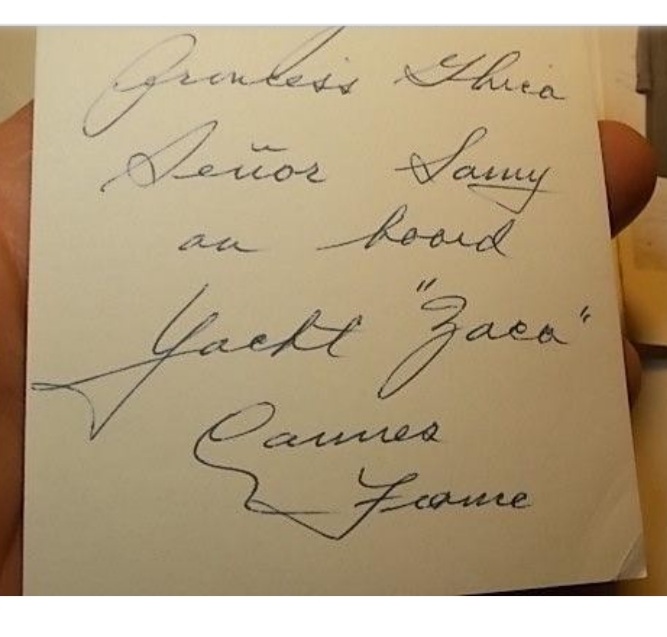 Princess Ghica
Señor Samy
on board
Yacht "Zaca"
Cannes
France